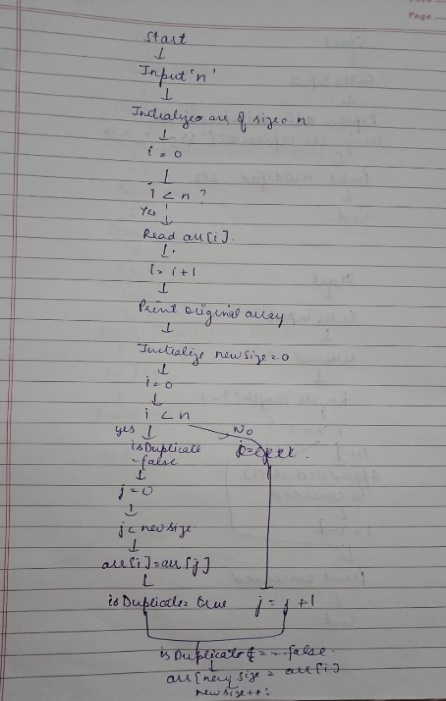 Page
Start
Input 'n'
Initialize arr of size n
i = 0
i < n ?
Yes
Read arr[i].
i = i+1
Print original array
Initialize newSize = 0
i = 0
i < n
yes No
isDuplicate
= false
j = 0
j < newSize
arr[i] = arr[j]
isDuplicate = true j = j +1
isDuplicate = = false.
arr[newSize = arr[i]
newSize++;